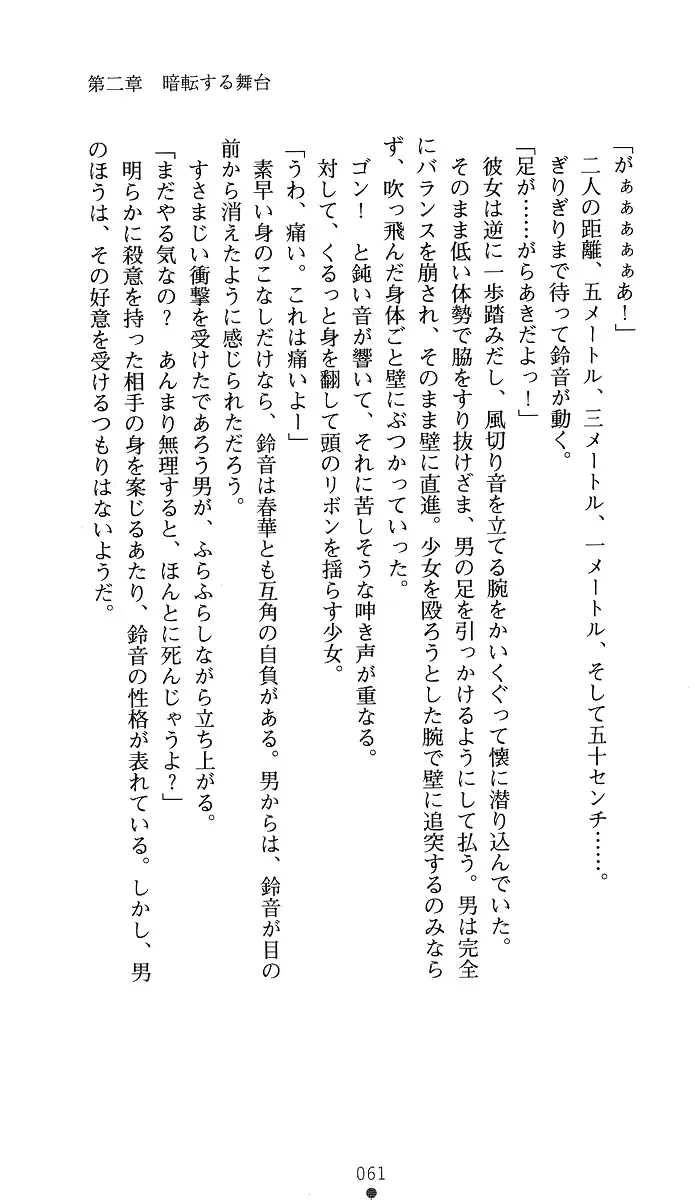 第二章　暗転する舞台
「がぁぁぁぁぁあ！」
二人の距離、五メートル、三メートル、一メートル、そして五十センチ……。
ぎりぎりまで待って鈴音が動く。
「足が……がらあきだよっ！」
彼女は逆に一歩踏みだし、風切り音を立てる腕をかいくぐって懐に潜り込んでいた。
そのまま低い体勢で脇をすり抜けざま、男の足を引っかけるようにして払う。男は完全
にバランスを崩され、そのまま壁に直進。少女を殴ろうとした腕で壁に追突するのみなら
ず、吹っ飛んだ身体ごと壁にぶつかっていった。
ゴン！　と鈍い音が響いて、それに苦しそうな呻き声が重なる。
対して、くるっと身を翻して頭のリボンを揺らす少女。
「うわ、痛い。これは痛いよー」
素早い身のこなしだけなら、鈴音は春華とも互角の自負がある。男からは、鈴音が目の
前から消えたように感じられただろう。
すさまじい衝撃を受けたであろう男が、ふらふらしながら立ち上がる。
「まだやる気なの？　あんまり無理すると、ほんとに死んじゃうよ？」
明らかに殺意を持った相手の身を案じるあたり、鈴音の性格が表れている。しかし、男
のほうは、その好意を受けるつもりはないようだ。
061